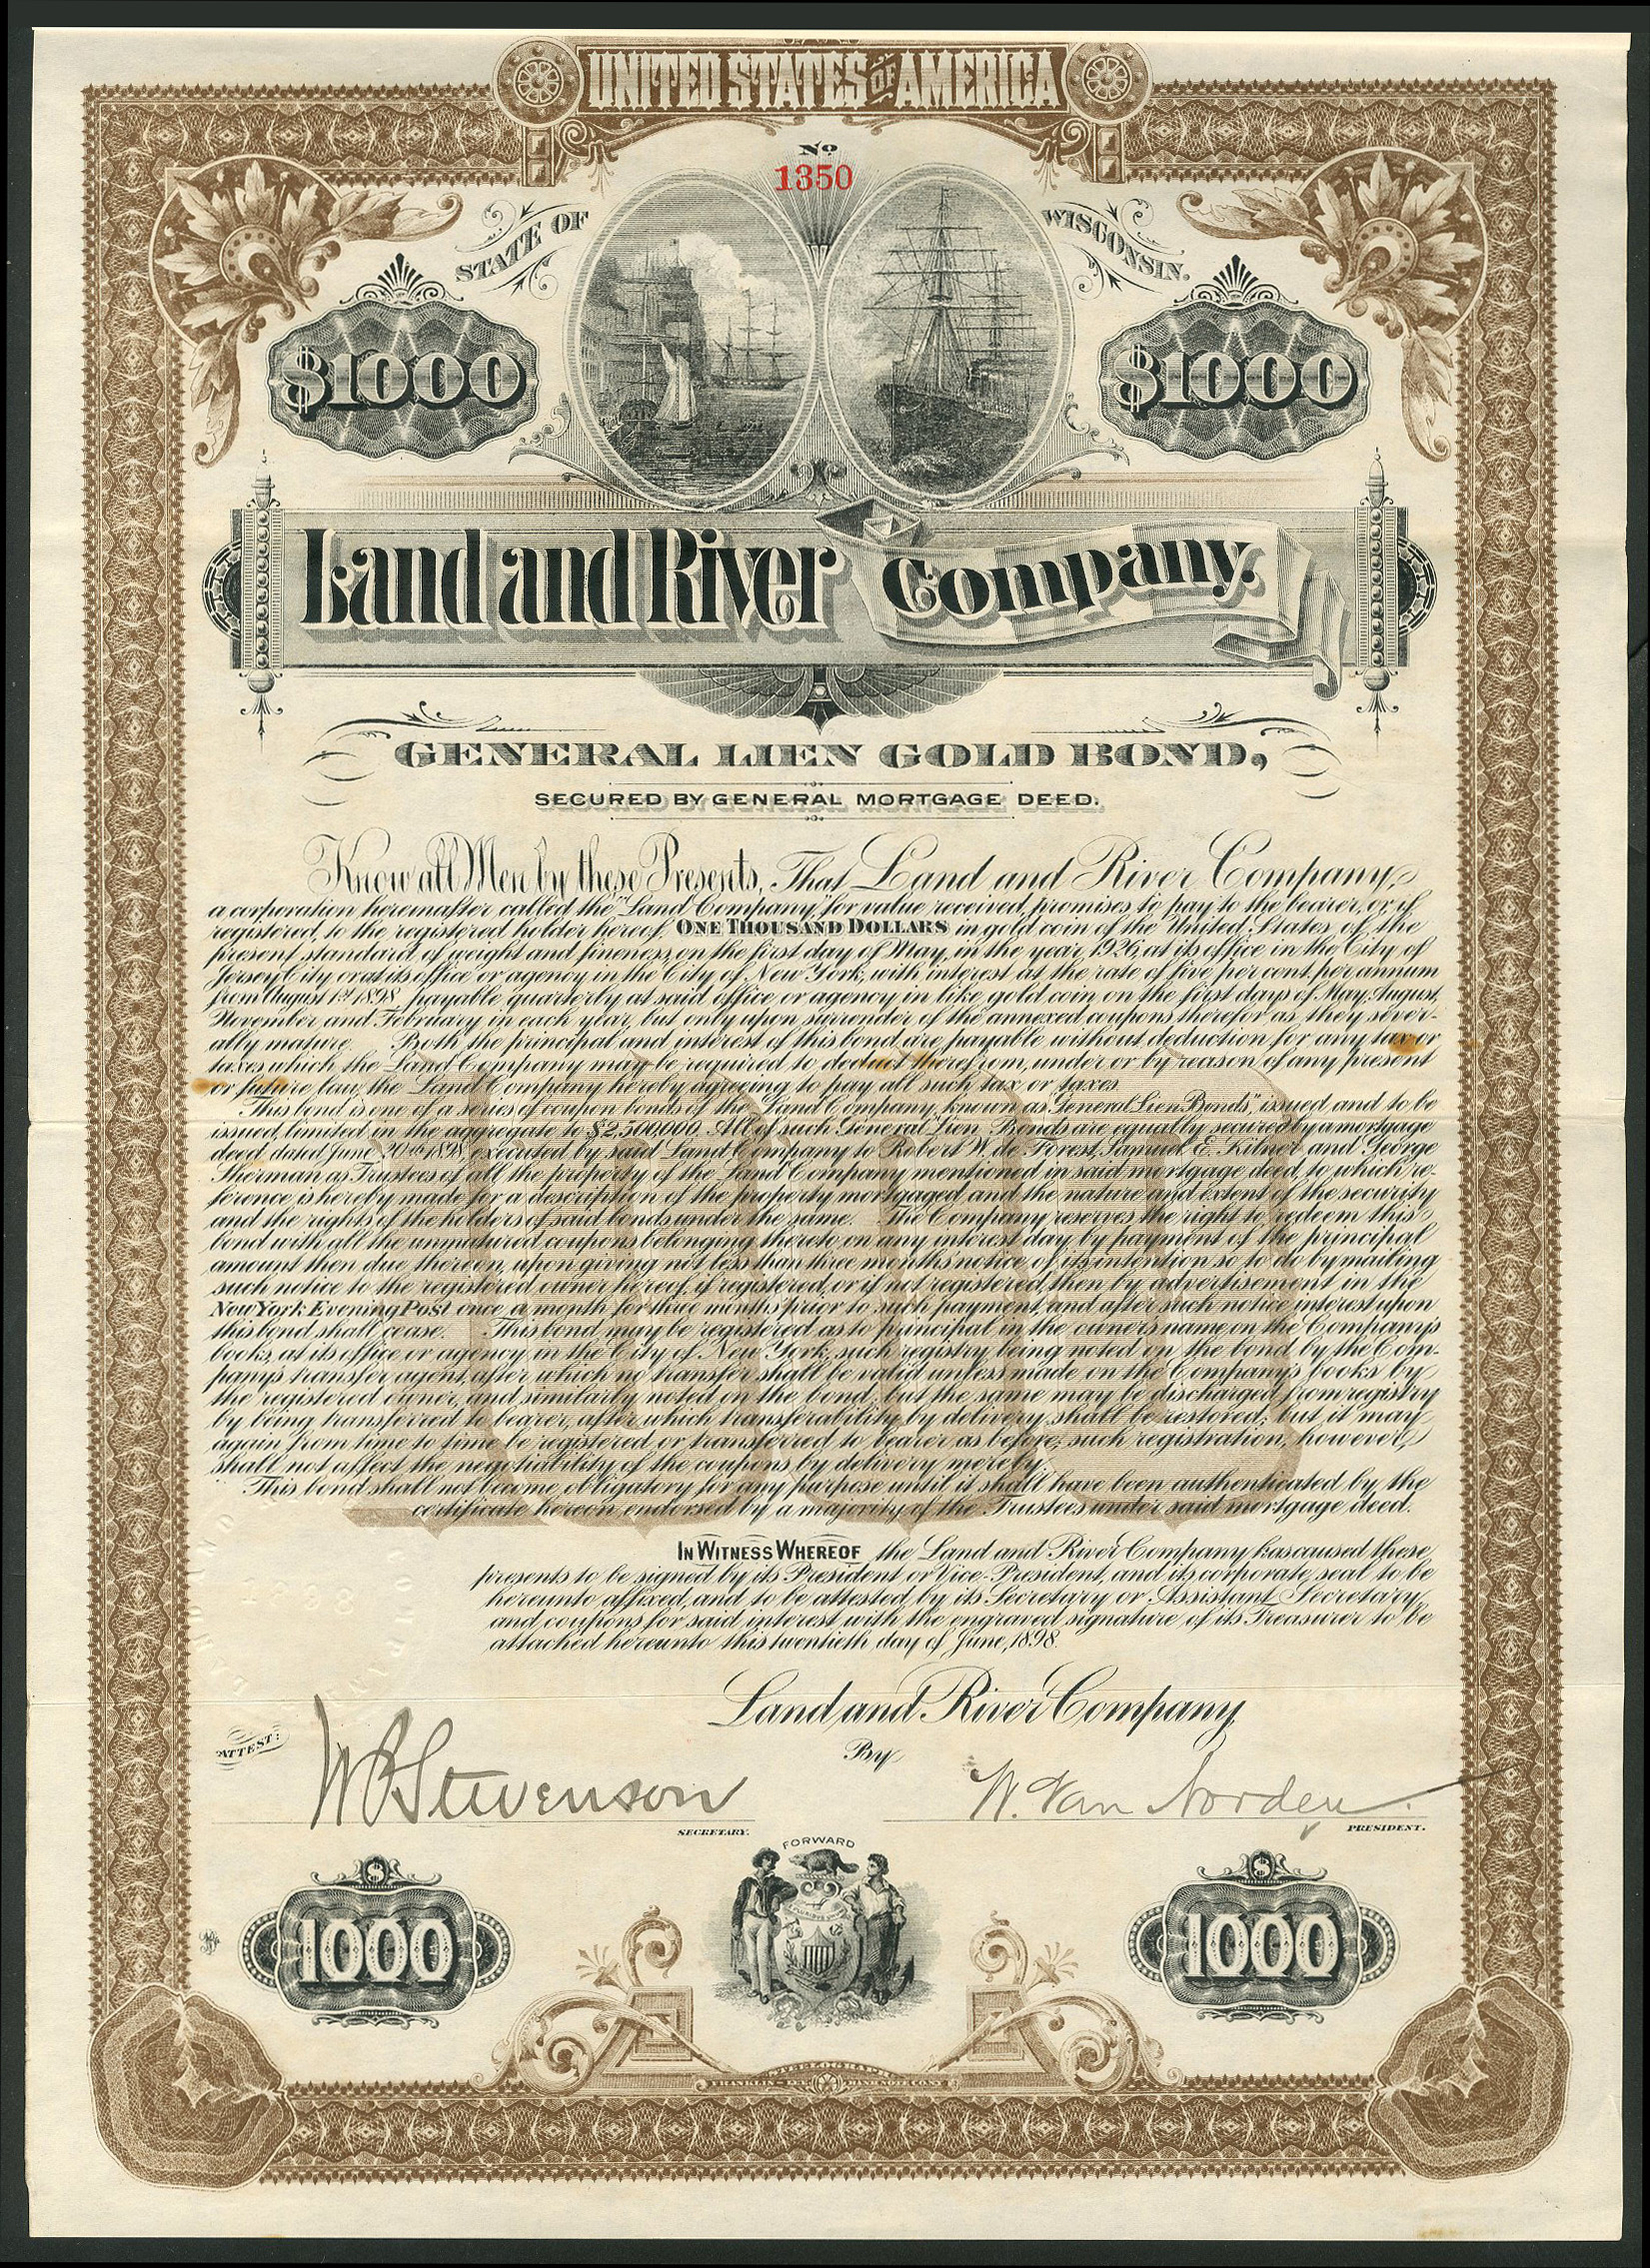 UNITED STATES OF AMERICA
No
1350
STATE OF WISCONSIN.
$1000 $1000
Land and River Company.
GENERAL LIEN GOLD BOND,
SECURED BY GENERAL MORTGAGE DEED.
Know all Men by these Presents, That Land and River Company,
a corporation hereinafter called the "Land Company," for value received, promises to pay to the bearer, or if
registered, to the registered holder hereof, ONE THOUSAND DOLLARS in gold coin of the United States, of the
present standard of weight and fineness, on the first day of May, in the year 1926, at its office in the City of
Jersey City or at its office or agency in the City of New York, with interest at the rate of five per cent. per annum
from August 1st 1898, payable quarterly at said office or agency in like gold coin on the first days of May, August,
November and February in each year, but only upon surrender of the annexed coupons therefor as they sever-
ally mature. Both the principal and interest of this bond are payable without deduction for any tax or
taxes which the Land Company may be required to deduct therefrom, under or by reason of any present
or future law, the Land Company hereby agreeing to pay all such tax or taxes.
This bond is one of a series of coupon bonds of the Land Company, known as "General Lien Bonds", issued and to be
issued, limited in the aggregate to $2,500,000. All of such General Lien Bonds are equally secured by a mortgage
deed dated June 20th 1898, executed by said Land Company to Robert W. de Forest, Samuel E. Kilner and George
Sherman as Trustees of all the property of the Land Company mentioned in said mortgage deed, to which re-
ference is hereby made for a description of the property mortgaged and the nature and extent of the security
and the rights of the holders of said bonds under the same. The Company reserves the right to redeem this
bond with all the unmatured coupons belonging thereto, on any interest day by payment of the principal
amount then due thereon, upon giving not less than three months notice of its intention so to do by mailing
such notice to the registered owner hereof, if registered, or if not registered, then by advertisement in the
New York Evening Post once a month for three months prior to such payment, and after such notice interest upon
this bond shall cease. This bond may be registered as to principal in the owner's name on the Company's
books, at its office or agency in the City of New York, such registry being noted on the bond by the Com-
pany's transfer agent, after which no transfer shall be valid unless made on the Company's books by
the registered owner, and similarly noted on the bond, but the same may be discharged from registry
by being transferred to bearer, after which transferability by delivery shall be restored; but it may
again from time to time be registered or transferred to bearer as before; such registration, however,
shall not affect the negotiability of the coupons by delivery merely.
This bond shall not become obligatory for any purpose until it shall have been authenticated by the
certificate hereon, endorsed by a majority of the Trustees under said mortgage deed.
IN WITNESS WHEREOF the Land and River Company has caused these
presents to be signed by its President or Vice-President, and its corporate seal to be
hereunto affixed, and to be attested by its Secretary or Assistant Secretary
and coupons for said interest with the engraved signature of its Treasurer to be
attached hereunto this twentieth day of June, 1898.
Land and River Company,
ATTEST:
By
W B Stevenson W. Van Norden
SECRETARY. PRESIDENT.
FORWARD
$ $
1000 1000